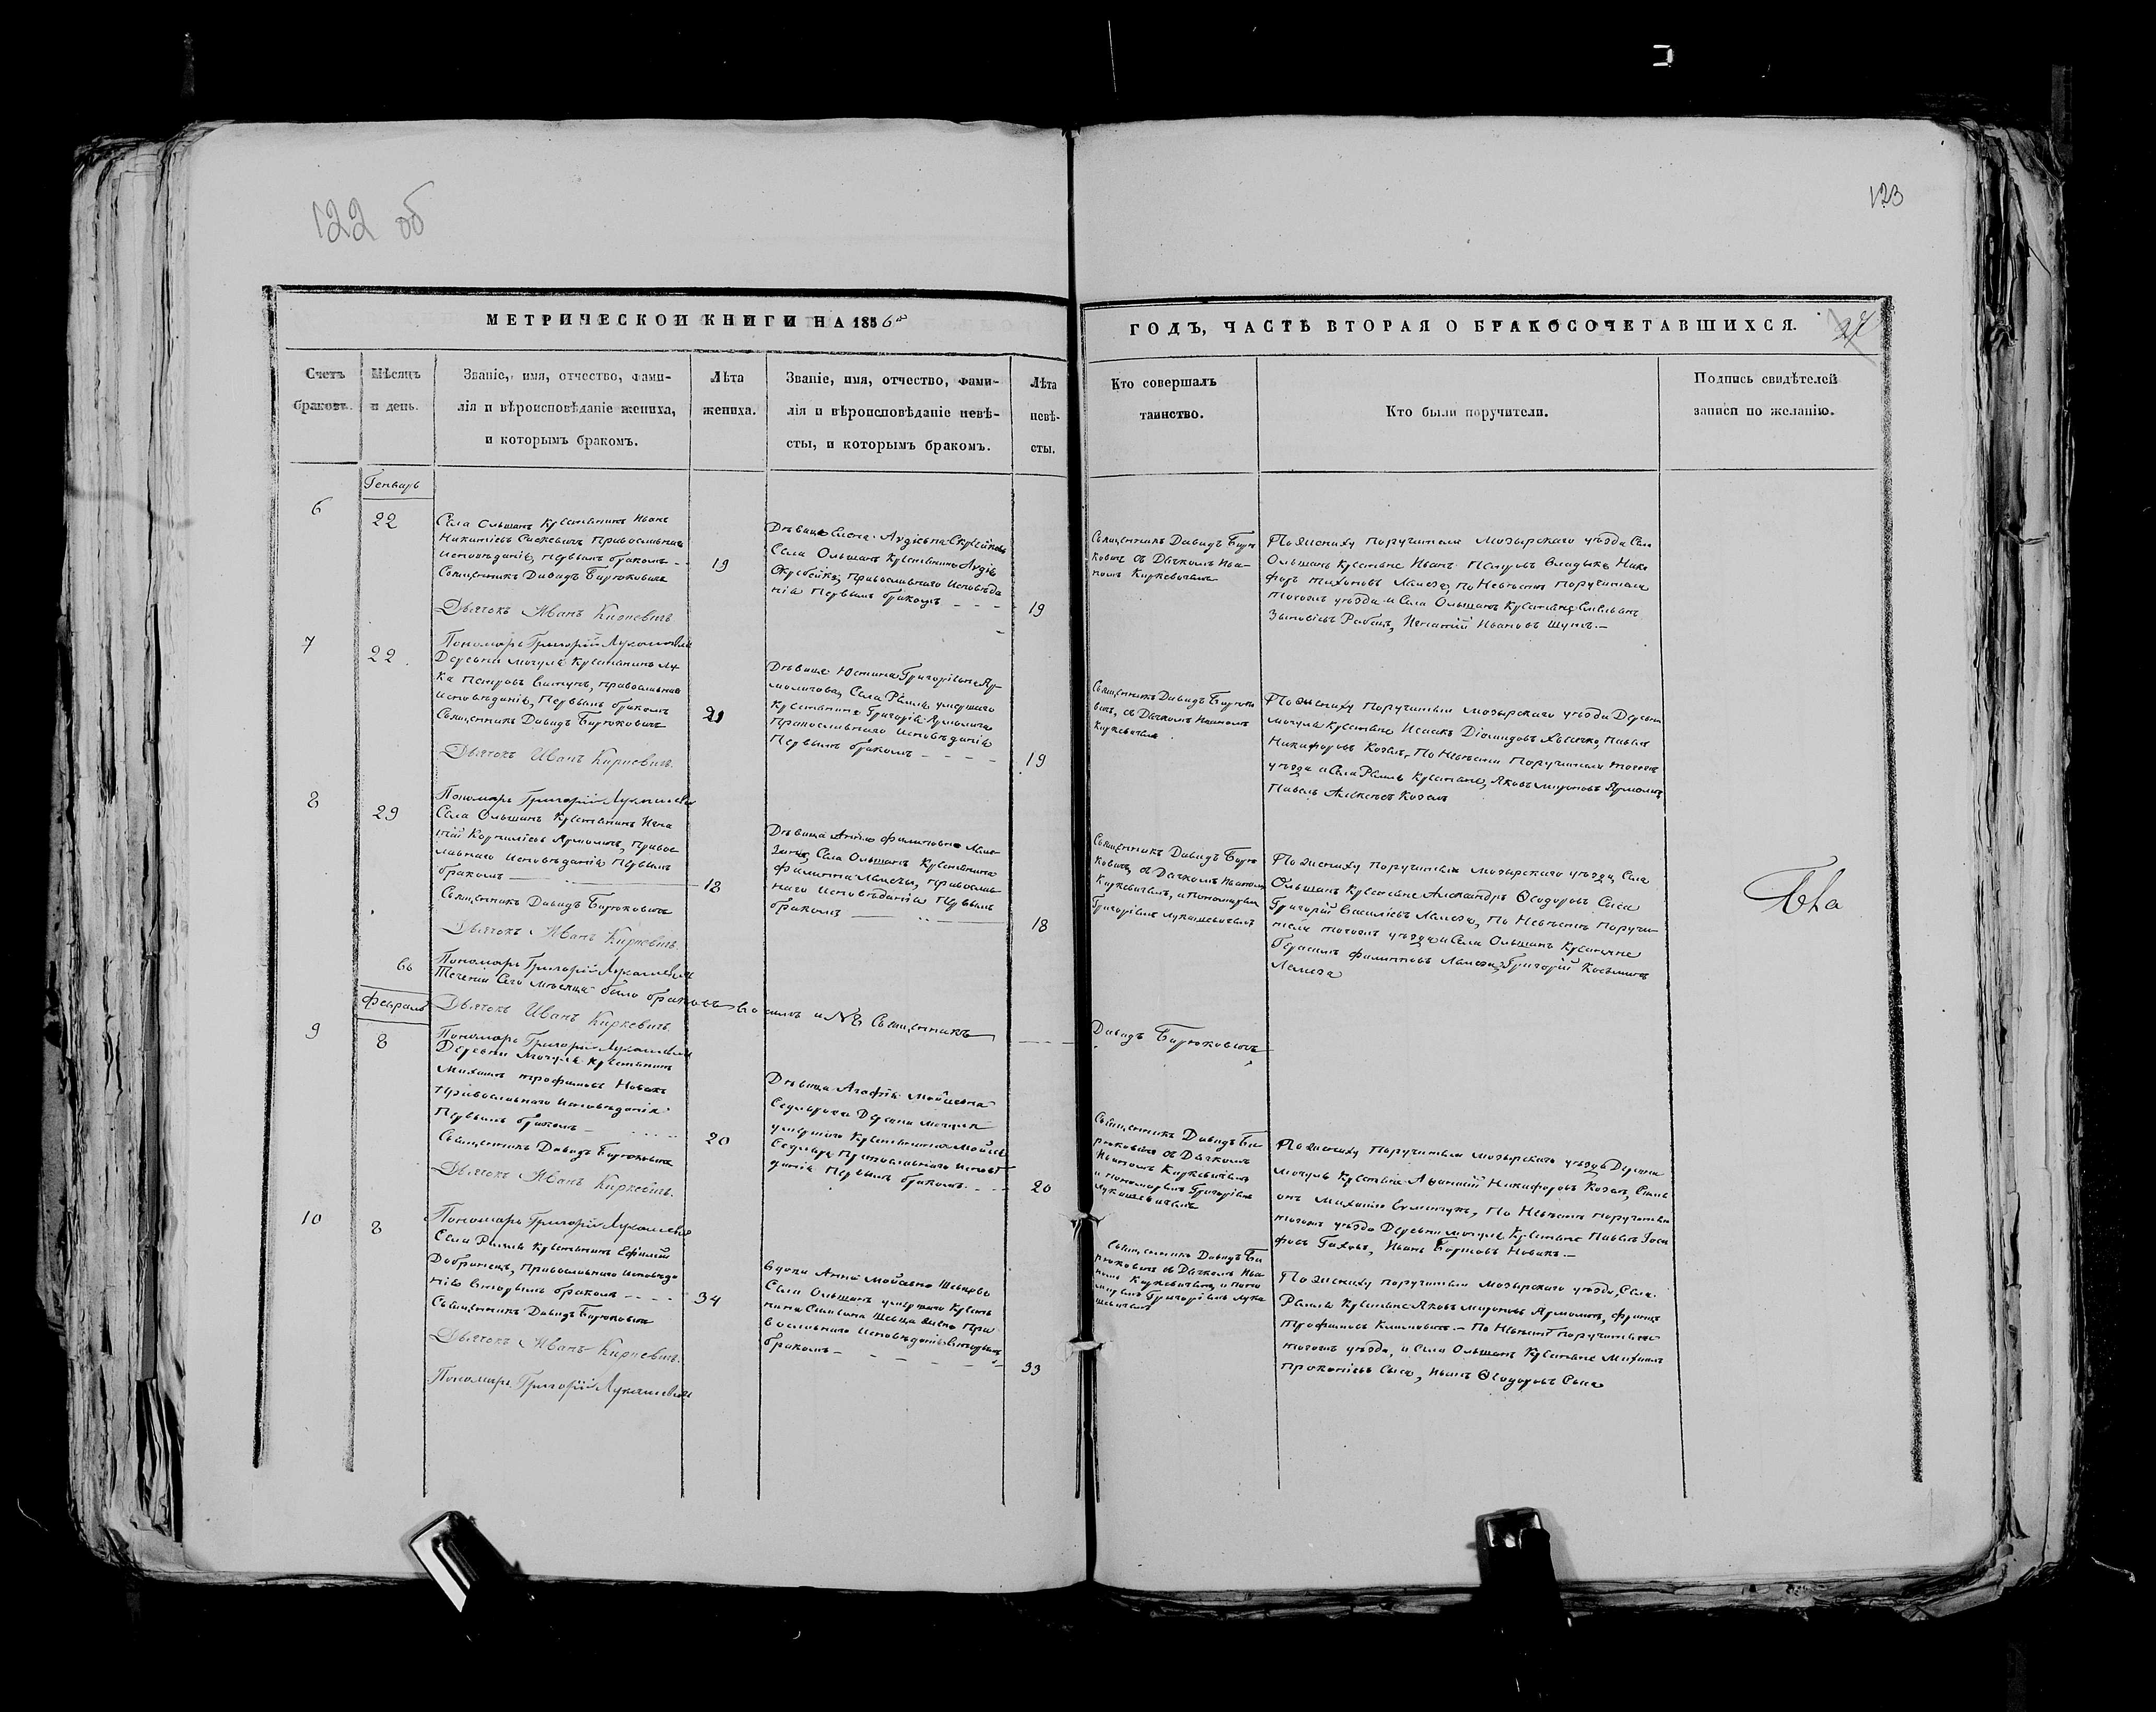 122 об
123
МЕТРИЧЕСКОЙ КНИГИ НА 1856й
ГОДЪ, ЧАСТЬ ВТОРАЯ О БРАКОСОЧЕТАВШИХСЯ.
27
Счетъ
браковъ.
Мѣсяцъ
и день.
Званіе, имя, отчество, фами-
лія и вѣроисповѣданіе жениха,
и которымъ бракомъ.
Лѣта
жениха.
Званіе, имя, отчество, фами-
лія и вѣроисповѣданіе невѣ-
сты, и которымъ бракомъ.
Лѣта
невѣ-
сты.
Кто совершалъ
таинство.
Кто были поручители.
Подпись свидѣтелей
записи по желанію.
Генварь
6
22
Села Ольшанъ Крестьянинъ Иванъ
Никитіевъ православнаго
исповѣданія, первымъ бракомъ
Священникъ Давидъ Бирюковичь
Дьячокъ Иванъ Киркевичъ
Пономарь Григорій Лукашевичь
19
Дѣвица Елена Авдіевна
Села Ольшанъ Крестьянина Авдія
православнаго исповѣда
нія первымъ бракомъ
19
Священникъ Давидъ Бирю
ковичь съ Дьячкомъ Ива
номъ Киркевичемъ
По женихѣ поручители Мозырскаго уѣзда Села
Ольшанъ Крестьяне Иванъ Петровъ Владыка Ники
форъ Тихоновъ Лемеза, по Невѣстѣ поручители
тогожъ уѣзда и Села Ольшанъ Крестьяне Емельянъ
Зыновіевъ Рабецъ, Игнатій Ивановъ Шутъ.
7
22
Деревни Мочуля Крестьянинъ Лу
ка Петровъ православнаго
исповѣданія, Первымъ бракомъ
Священникъ Давидъ Бирюковичь
Дьячокъ Иванъ Киркевичъ.
Пономарь Григорій Лукашевичь
21
Дѣвица Юстина Григоріевна Яр-
моличова, Села Рѣмля умершаго
Крестьянина Григорія Ярмолича
Православнаго исповѣданія
Первымъ бракомъ
19
Священникъ Давидъ Бирюко
вичь, съ Дьячкомъ Иваномъ
Киркевичемъ
По женихѣ поручители Мозырскаго уѣзда Деревни
Мочуля Крестьяне Исаакъ Павелъ
Никифоровъ Козелъ, По Невѣстѣ поручители тогожъ
уѣзда и Села Рѣмля Крестьяне, Яковъ Мироновъ Ярмоличь
Павелъ Алексѣевъ Козелъ
8
29
Села Ольшанъ Крестьянинъ Игна
тій Корниліевъ Ярмоличъ, право
славнаго исповѣданія первымъ
бракомъ
Священникъ Давидъ Бирюковичь
Дьячокъ Иванъ Киркевичъ.
Пономарь Григорій Лукашевичь
18
Дѣвица Анна Филиповна Леме-
Села Ольшанъ Крестьянина
Филиппа Лемезы, православ
наго исповѣданія первымъ
бракомъ
18
Священникъ Давидъ Бирю
ковичь съ Дьячкомъ Иваномъ
Киркевичемъ, и Пономаремъ
Григоріемъ Лукашевичемъ
По женихѣ поручители Мозырскаго уѣзда, Села
Ольшанъ Крестьяне Александръ Ѳеодоровъ Сыса
Григорій Василіевъ Лемеза, По Невѣстѣ поручи-
тели тогожъ уѣзда и Села Ольшанъ Крестьяне
Герасимъ Филипповъ Лемеза, Григорій Косьминъ
Лемеза
Въ
Теченіи Сего Мѣсяца было браковъ восемь и № 8 Священникъ
Давидъ Бирюковичь
Дьячокъ Иванъ Киркевичъ.
Пономарь Григорій Лукашевичь
Февраль
9
8
Деревни Мочуля Крестьянинъ
Михаилъ Трофимовъ Новакъ
Православнаго исповѣданія
Первымъ бракомъ
Священникъ Давидъ Бирюковичь
Дьячокъ Иванъ Киркевичъ.
Пономарь Григорій Лукашевичь
20
Дѣвица Агафія Мойсеевна
Деревни Мочуля
умершаго Крестьянина Мойсея
Православнаго исповѣ
данія Первымъ бракомъ
20
Священникъ Давидъ Би
рюковичь съ Дьячкомъ
Иваномъ Киркевичемъ
и пономаремъ Григоріемъ
Лукашевичемъ
По женихѣ поручители Мозырскаго уѣзда Деревни
Мочуля Крестьяне Никифоровъ Козелъ,
По Невѣстѣ поручители
тогожъ уѣзда Деревни Мочуля Крестьяне Павелъ
Иванъ Новакъ.
10
8
Села Рѣмля Крестьянинъ Ефимій
Добринецъ, Православнаго исповѣда
нія вторымъ бракомъ
Священникъ Давидъ Бирюковичь
Дьячокъ Иванъ Киркевичъ.
Пономарь Григорій Лукашевичь
34
Вдова Анна
Села Ольшанъ умершаго Крестья
нина Пра
вославнаго исповѣданія вторымъ
бракомъ
33
Священникъ Давидъ Би
рюковичь съ Дьячкомъ Ива
номъ Киркевичемъ, и поно
маремъ Григоріемъ Лука
шевичемъ
По женихѣ поручители Мозырскаго уѣзда, Села
Рѣмля Крестьяне Яковъ Мироновъ Ярмоличь,
Трофимовъ Климовичь. По Невѣстѣ поручители
тогожъ уѣзда, и Села Ольшанъ Крестьяне Михаилъ
Прокопіевъ Сыса, Иванъ Ѳеодоровъ Сыса